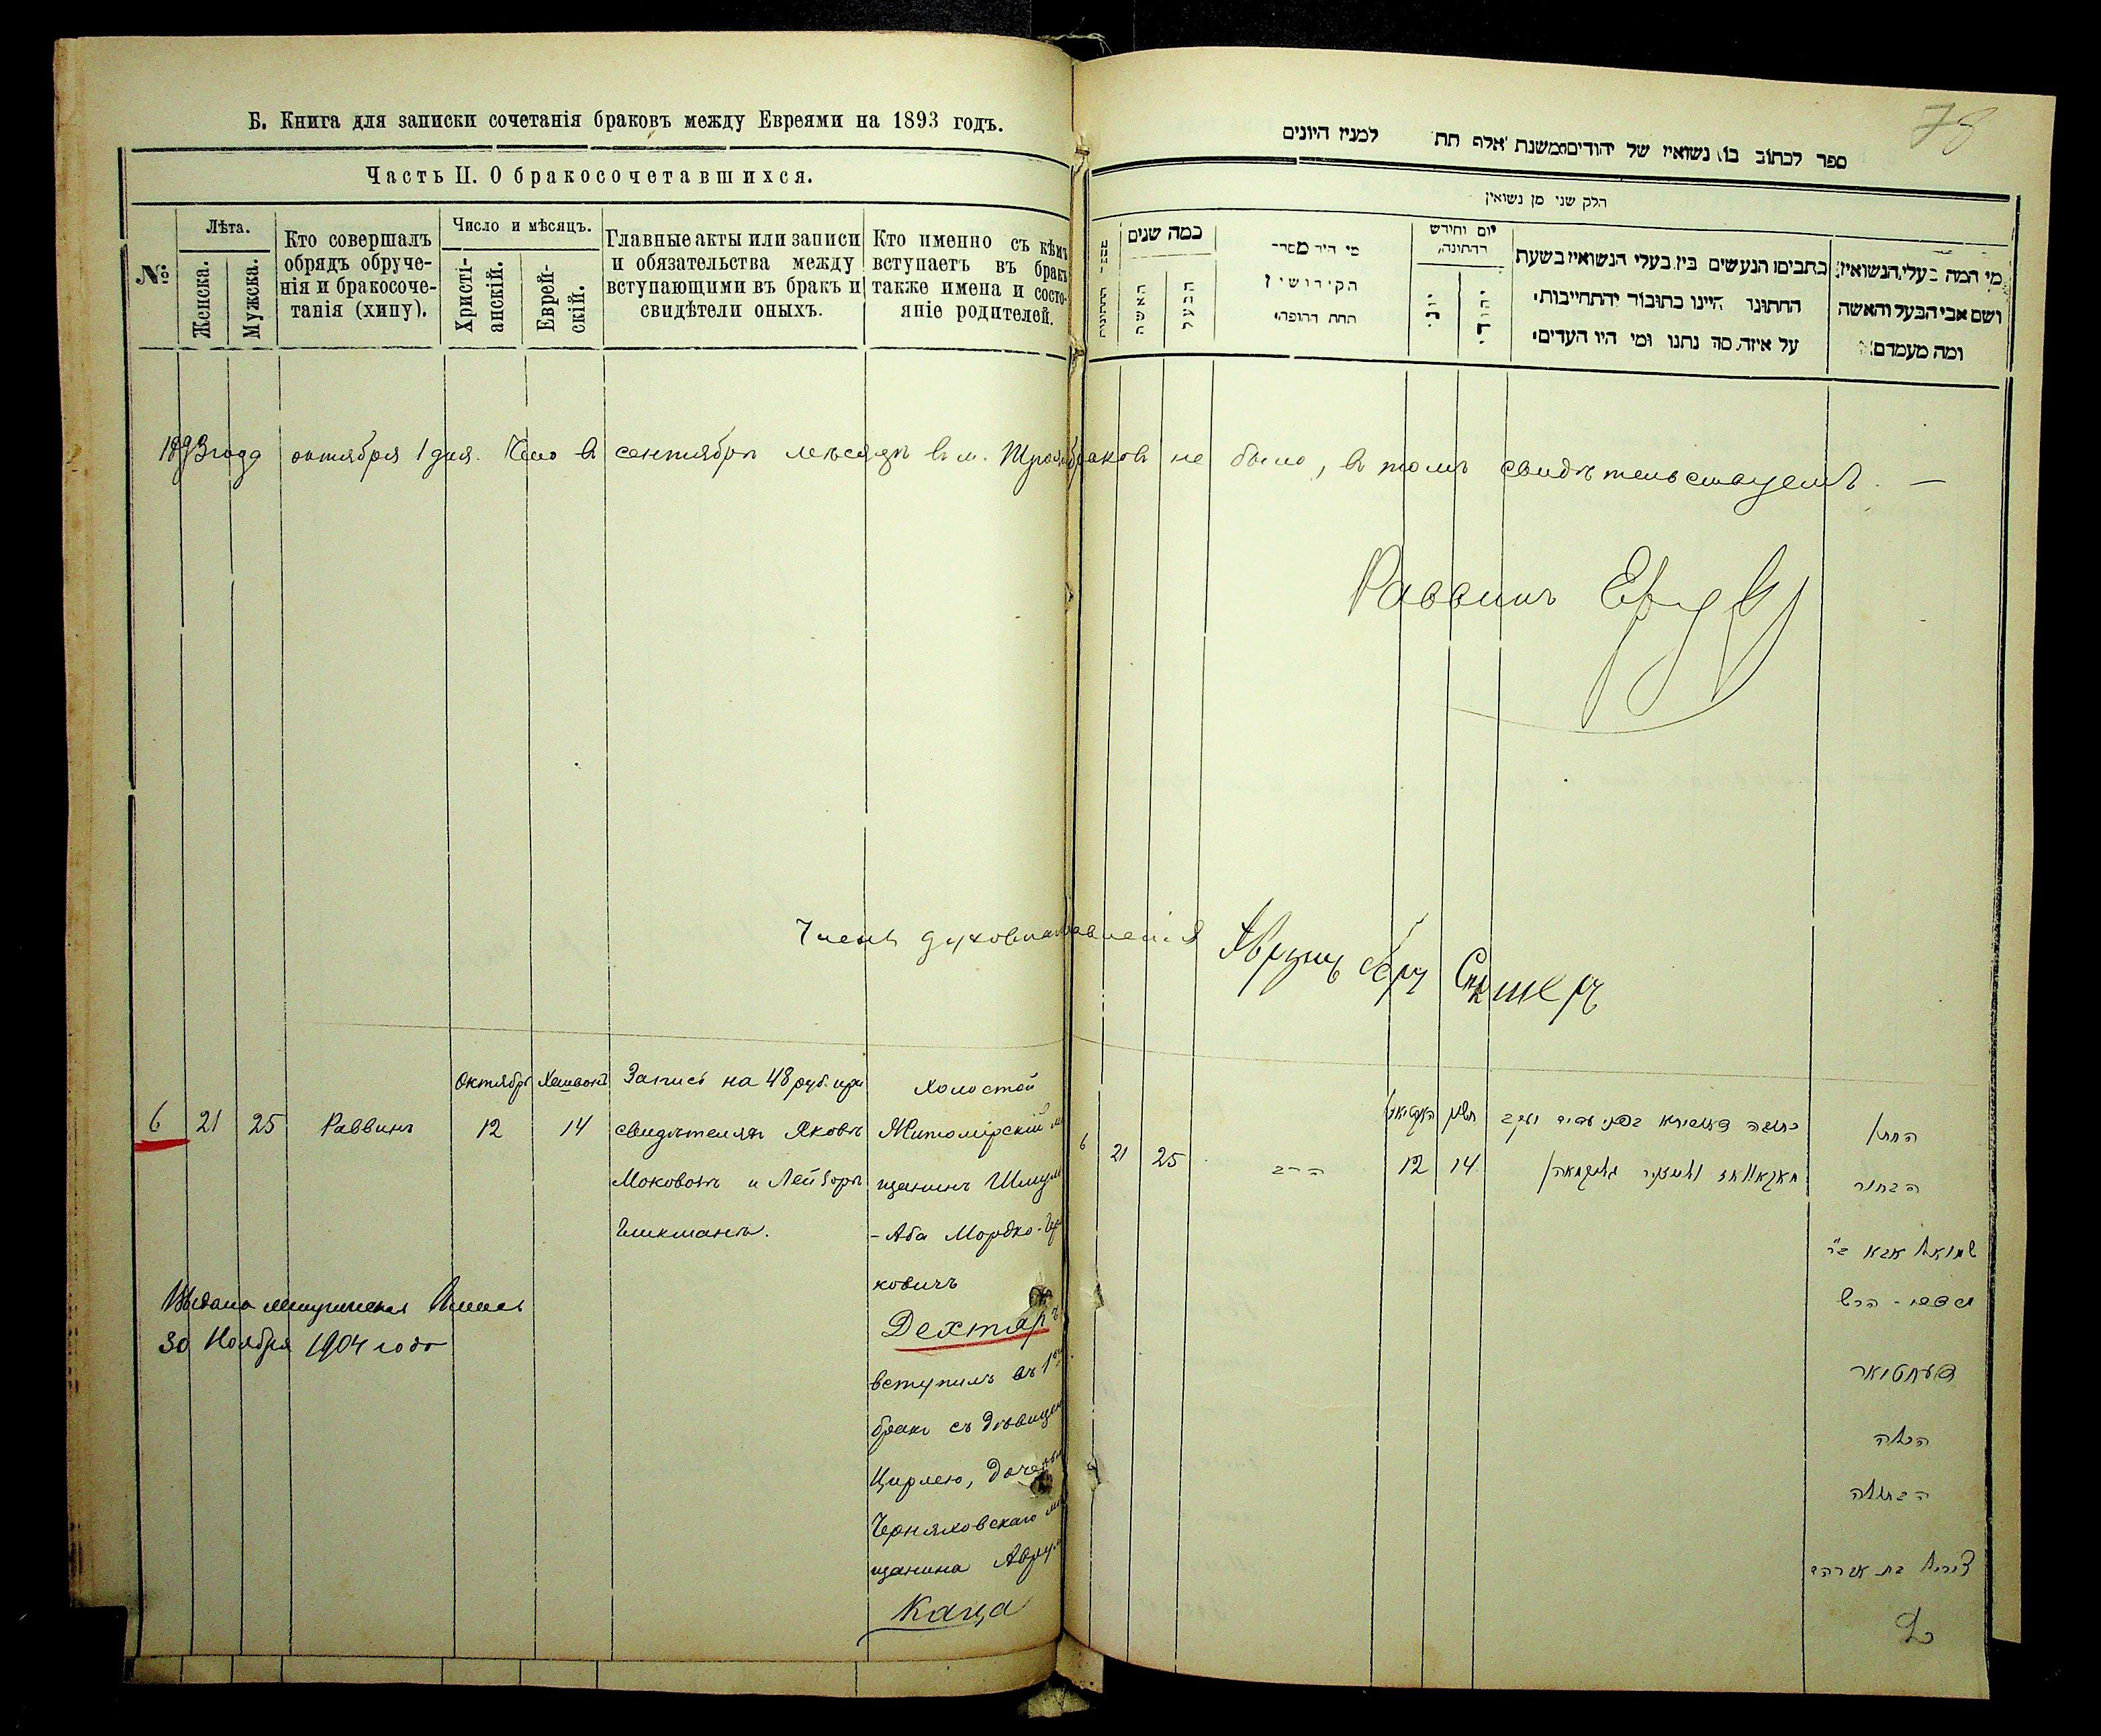 Б. Книга для записки сочетанія браковъ между Евреями на 1893 годъ.
Часть II. О бракосочетавшихся.
№
Лѣта.
Женска.
Мужска.
Кто совершалъ
обрядъ обруче-
нія и бракосоче-
танія (хипу).
Число и мѣсяцъ.
Христі-
анскій.
Еврей-
скій.
Главные акты или записи
и обязательства между
вступающими въ бракъ и
свидѣтели оныхъ.
Кто именно съ кѣмъ
вступаетъ въ бракъ
также имена и состо-
яніе родителей.
78
ספר לכתוב בו נשואין של יהודים משנת אלף תת למנין היונים
חלק שני מן נשואין
כמה שנים
האשה
הבעל
מי היה מסדר
הקידושין
תחת החופה
יום וחודש
החתונה
יוני
יהודי
כתבים הנעשים בין בעלי הנשואין בשעת
החתונה היינו כתובה והתחייבות
על איזה סך נתנו ומי היו העדים
מי המה בעלי הנשואין
ושם אבי הבעל והאשה
ומה מעמדם
1893 года октября 1 дня. Что в сентябрѣ мѣсяцѣ в м. браков не было, в томъ свидѣтельствуемъ. —
Раввинъ
Членъ духовн правленія Аврумъ
6 21 25 Раввинъ
Октябрь 12
Хешвонъ 14
Запись на 48 руб. при
свидѣтеляхъ Яковѣ
Моковозѣ и Лейзорѣ
Гликманѣ.
Холостой
Житомірскій мѣ
щанинъ Шмуль
- Аба Мордко-Гер
ковичъ
Дехтяръ
вступилъ въ 1й
бракъ съ дѣвицею
Цирлею, дочерью
Черняховскаго мѣ
щанина Аврума
Каца
Выдана метрическая
30 Ноября 1904 года
6 21 25 הרב 12 14
החתן
הבחור
שמואל אבא ב"ר
מרדכי - הרש
דעחטיאר
הכלה
הבתולה
צירל בת אברהם
כץ